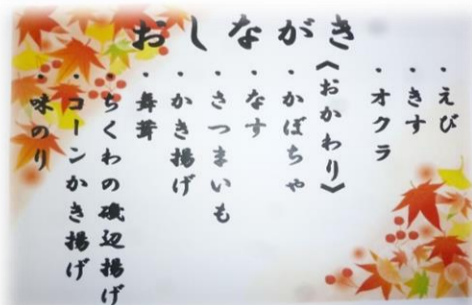 おしながき
・えび
・きす
・オクラ
《おかわり》
・かぼちゃ
・なす
・さつまいも
・かき揚げ
・舞茸
・ちくわの磯辺揚げ
・コーンかき揚げ
・味のり